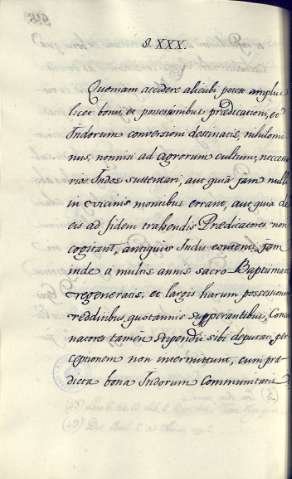 §. XXX.
Quoniam accidere alicubi potest
licet boni, et possessionibus predicationi, et
Indorum conversioni destinatis, nihilomi-
nus, nonnisi ad agrorum cultum, necessa-
rios Indos sustentari, aut quia jam nulli
in vicinis montibus errant, aut quia de
eis ad fidem trahendis Predicatores non
cogitant, antiquis Indis contenti, jam
inde a multis annis sacro Baptismate
regeneratis, et largis harum possessionum
redditibus, quotannis superantibus,
natores tamen stipendii sibi deputati per-
ceptionem non intermittunt, cum pre-
dicta bona Indorum Communitati